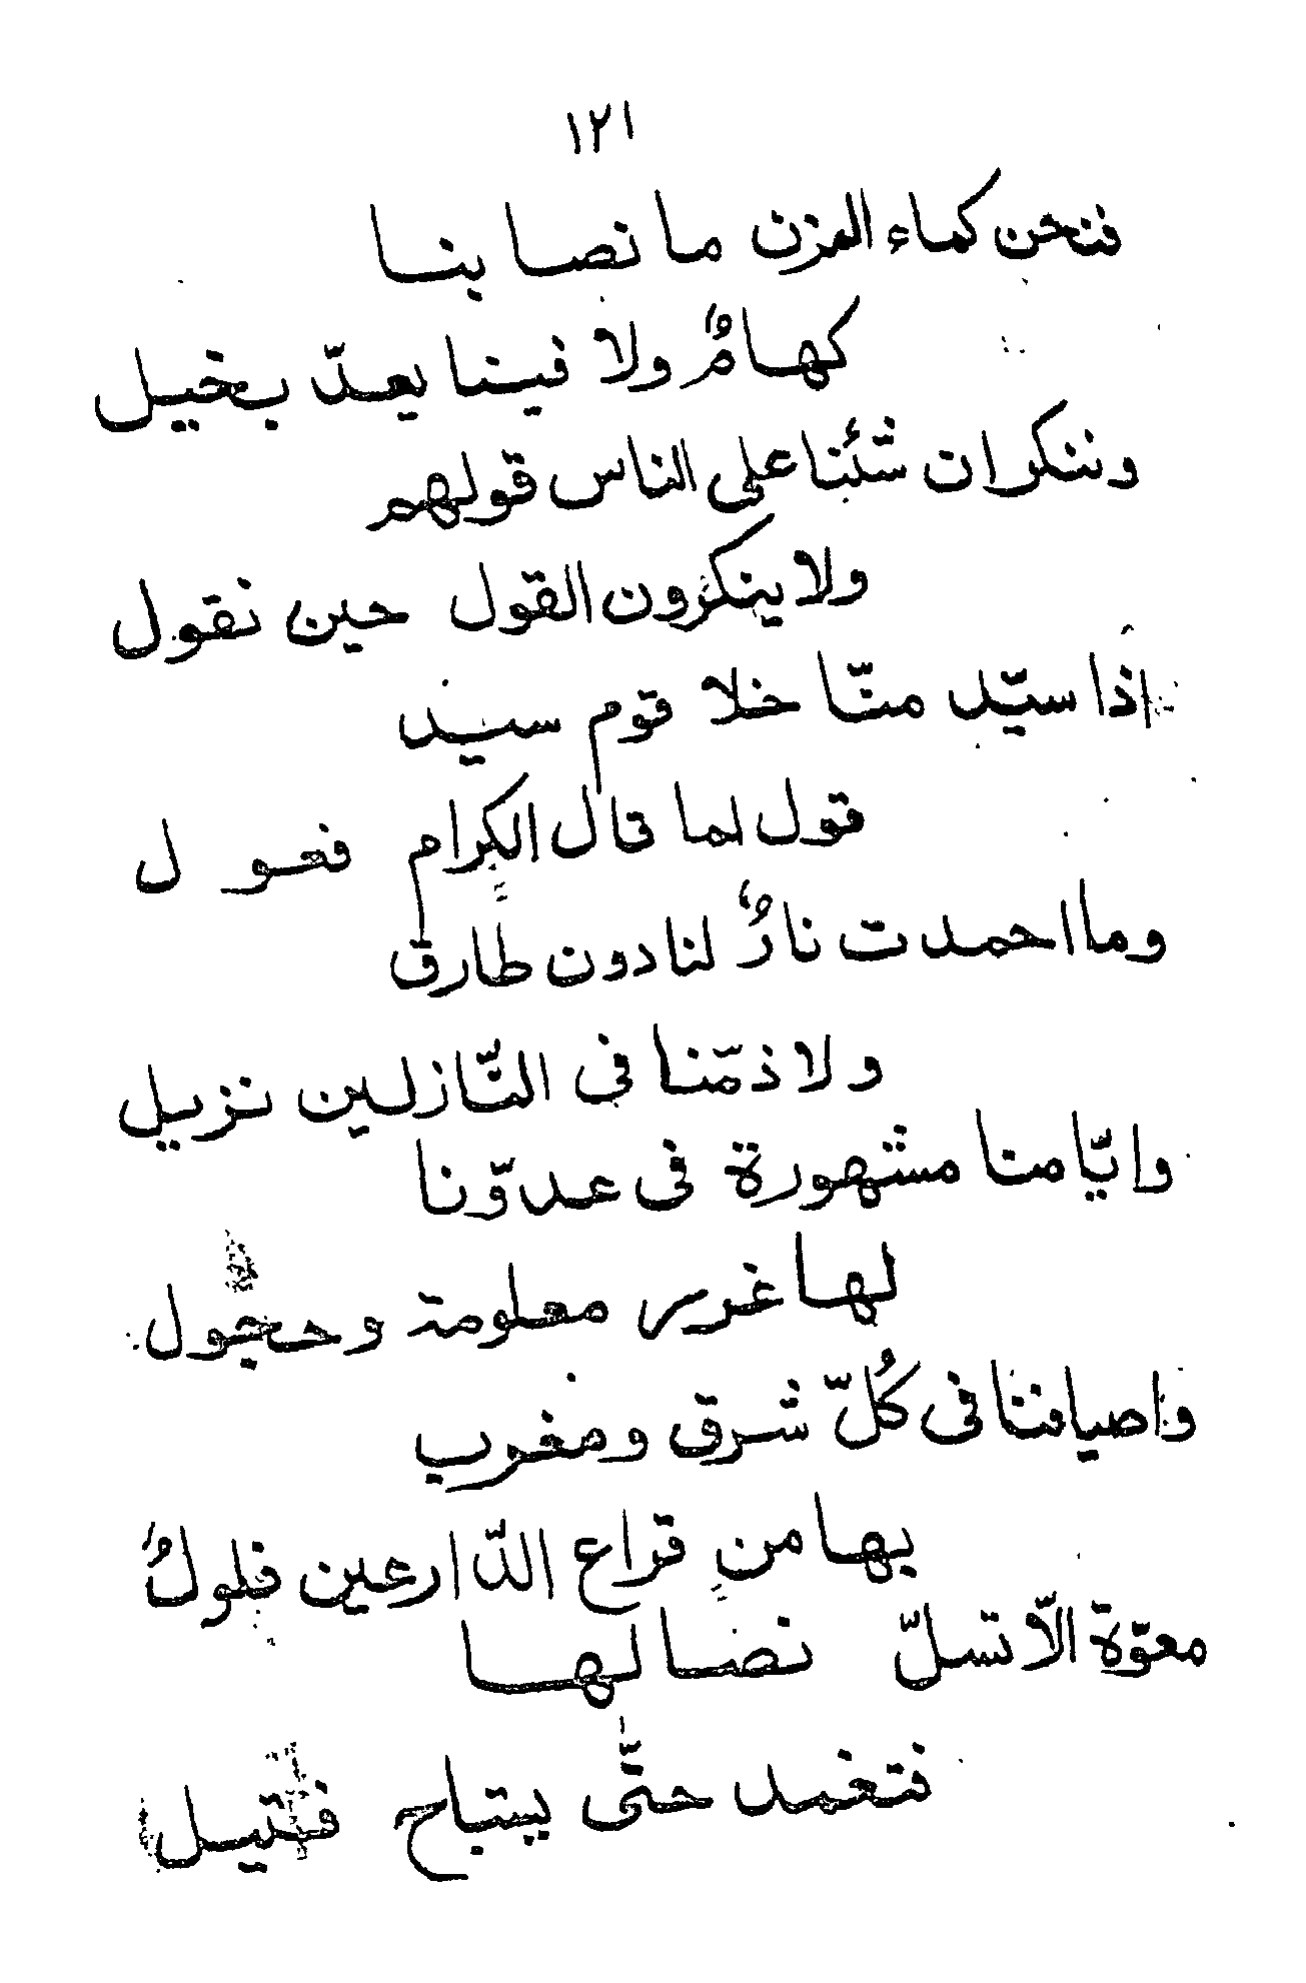 ١٢١
فنحن كماء المزن ما نصا بنا
كهامٌ ولا فينا يعدّ بخيل
وننكر ان شئنا على الناس قولهم
ولا ينكرون القول حين نقول
اذا سيّد منّا خلا قوم سيد
قول لما قال الكرام فعول
وما احمدت نارٌ لنا دون طارق
ولا ذمّنا في النّازلين نزيل
وايّامنا مشهورة في عدوّنا
لها غرر معلومة وحجول
واصيافنا في كُلّ شرق ومغرب
بها من قراع الدّارعين فلولُ
معوّة الّا تسلّ نضالها
فتغمد حتّى يستباح قتيل